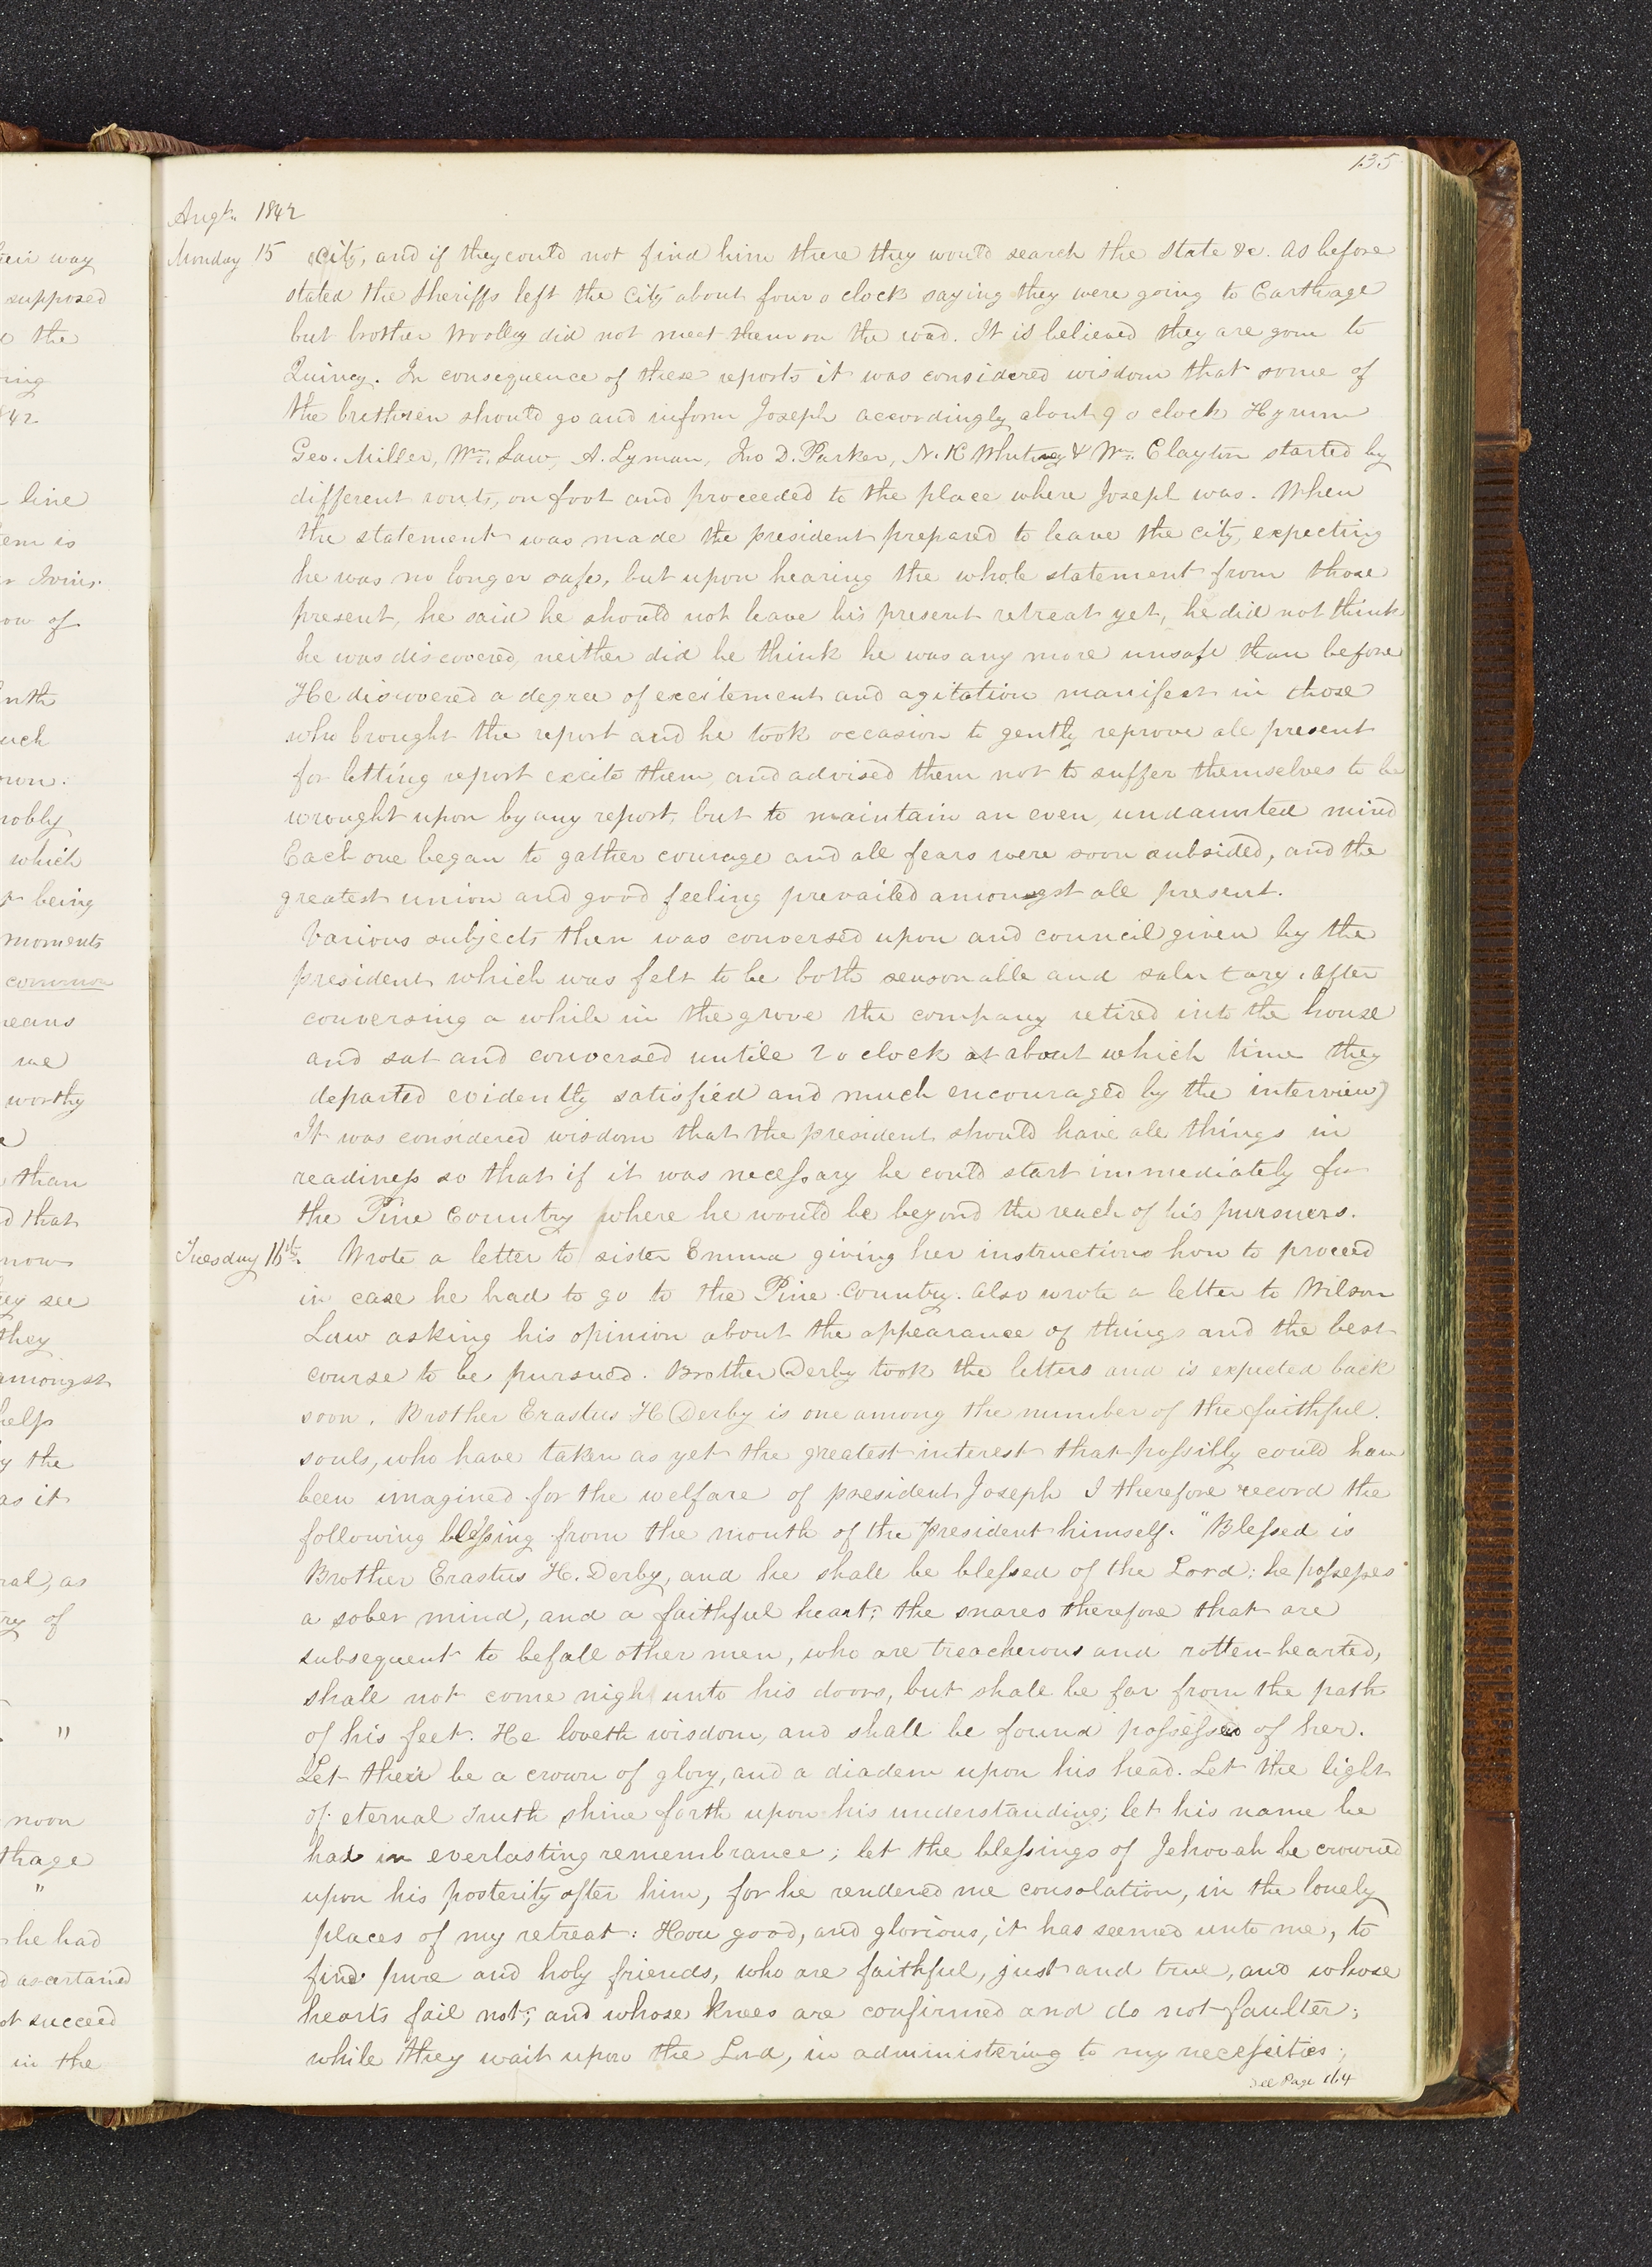 135
Augt. 1842
Monday 15 City, and if they could not find him there they would search the State &c. As before
stated the Sheriffs left the City about four o clock saying they were going to Carthage
but brother Woolley did not meet them on the road. It is believed they are gone to
Quincy. In consequence of these reports it was considered wisdom that some of
the brethren should go and inform Joseph accordingly about 9 o clock Hyrum
Geo. Miller, Wm. Law, A. Lyman, Jno D. Parker, N. K Whitney & Wm. Clayton started by
different routs, on foot and proceeded to the place where Joseph was. When
the statement was made the president prepared to leave the city, expecting
he was no longer safe, but upon hearing the whole statement from those
present, he said he should not leave his present retreat yet, he did not think
he was discovered, neither did he think he was any more unsafe than before
He discovered a degree of excitement and agitation manifest in those
who brought the report and he took occasion to gently reprove all present
for letting report excite them, and advised them not to suffer themselves to be
wrought upon by any report, but to maintain an even, undaunted mind
Each one began to gather courage and all fears were soon subsided, and the
greatest union and good feeling prevailed amongst all present.
Various subjects then was conversed upon and council given by the
president which was felt to be both seasonable and salutary. After
conversing a while in the grove the company retired into the house
and sat and conversed untile 2 o clock at about which time they
departed evidently satisfied and much encouraged by the interview)
It was considered wisdom that the president should have all things in
readiness so that if it was necessary he could start immediately for
the Pine Country where he would be beyond the reach of his pursuers.
Tuesday 16th. Wrote a letter to sister Emma giving her instructions how to proceed
in case he had to go to the Pine Country. Also wrote a letter to Wilson
Law asking his opinion about the appearance of things and the best
course to be pursued. Brother Derby took the letters and is expected back
soon. Brother Erastus H Derby is one among the number of the faithful
souls, who have taken as yet the greatest interest that possibly could have
been imagined for the welfare of president Joseph I therefore record the
following blessing from the mouth of the President himself. "Blessed is
Brother Erastus H. Derby, and he shall be blessed of the Lord; he possesses
a sober mind, and a faithful heart; the snares therefore that are
subsequent to befall other men, who are treacherous and rotten-hearted,
shall not come nigh unto his doors, but shall be far from the path
of his feet. He loveth wisdom, and shall be found possessed of her.
Let their be a crown of glory, and a diadem upon his head. Let the light
of eternal Truth shine forth upon his understanding; let his name be
had in everlasting remembrance; let the blessings of Jehovah be crowned
upon his posterity after him, for he rendered me consolation, in the lonely
places of my retreat: How good, and glorious, it has seemed unto me, to
find pure and holy friends, who are faithful, just and true, and whose
hearts fail not; and whose knees are confirmed and do not faulter;
while they wait upon the Lord, in administering to my necessities;
See Page 164
their way
supposed
the
line
than
that
now
see
they
amongst
help
the
as it
noon
he had
ascertained
not succeed
in the